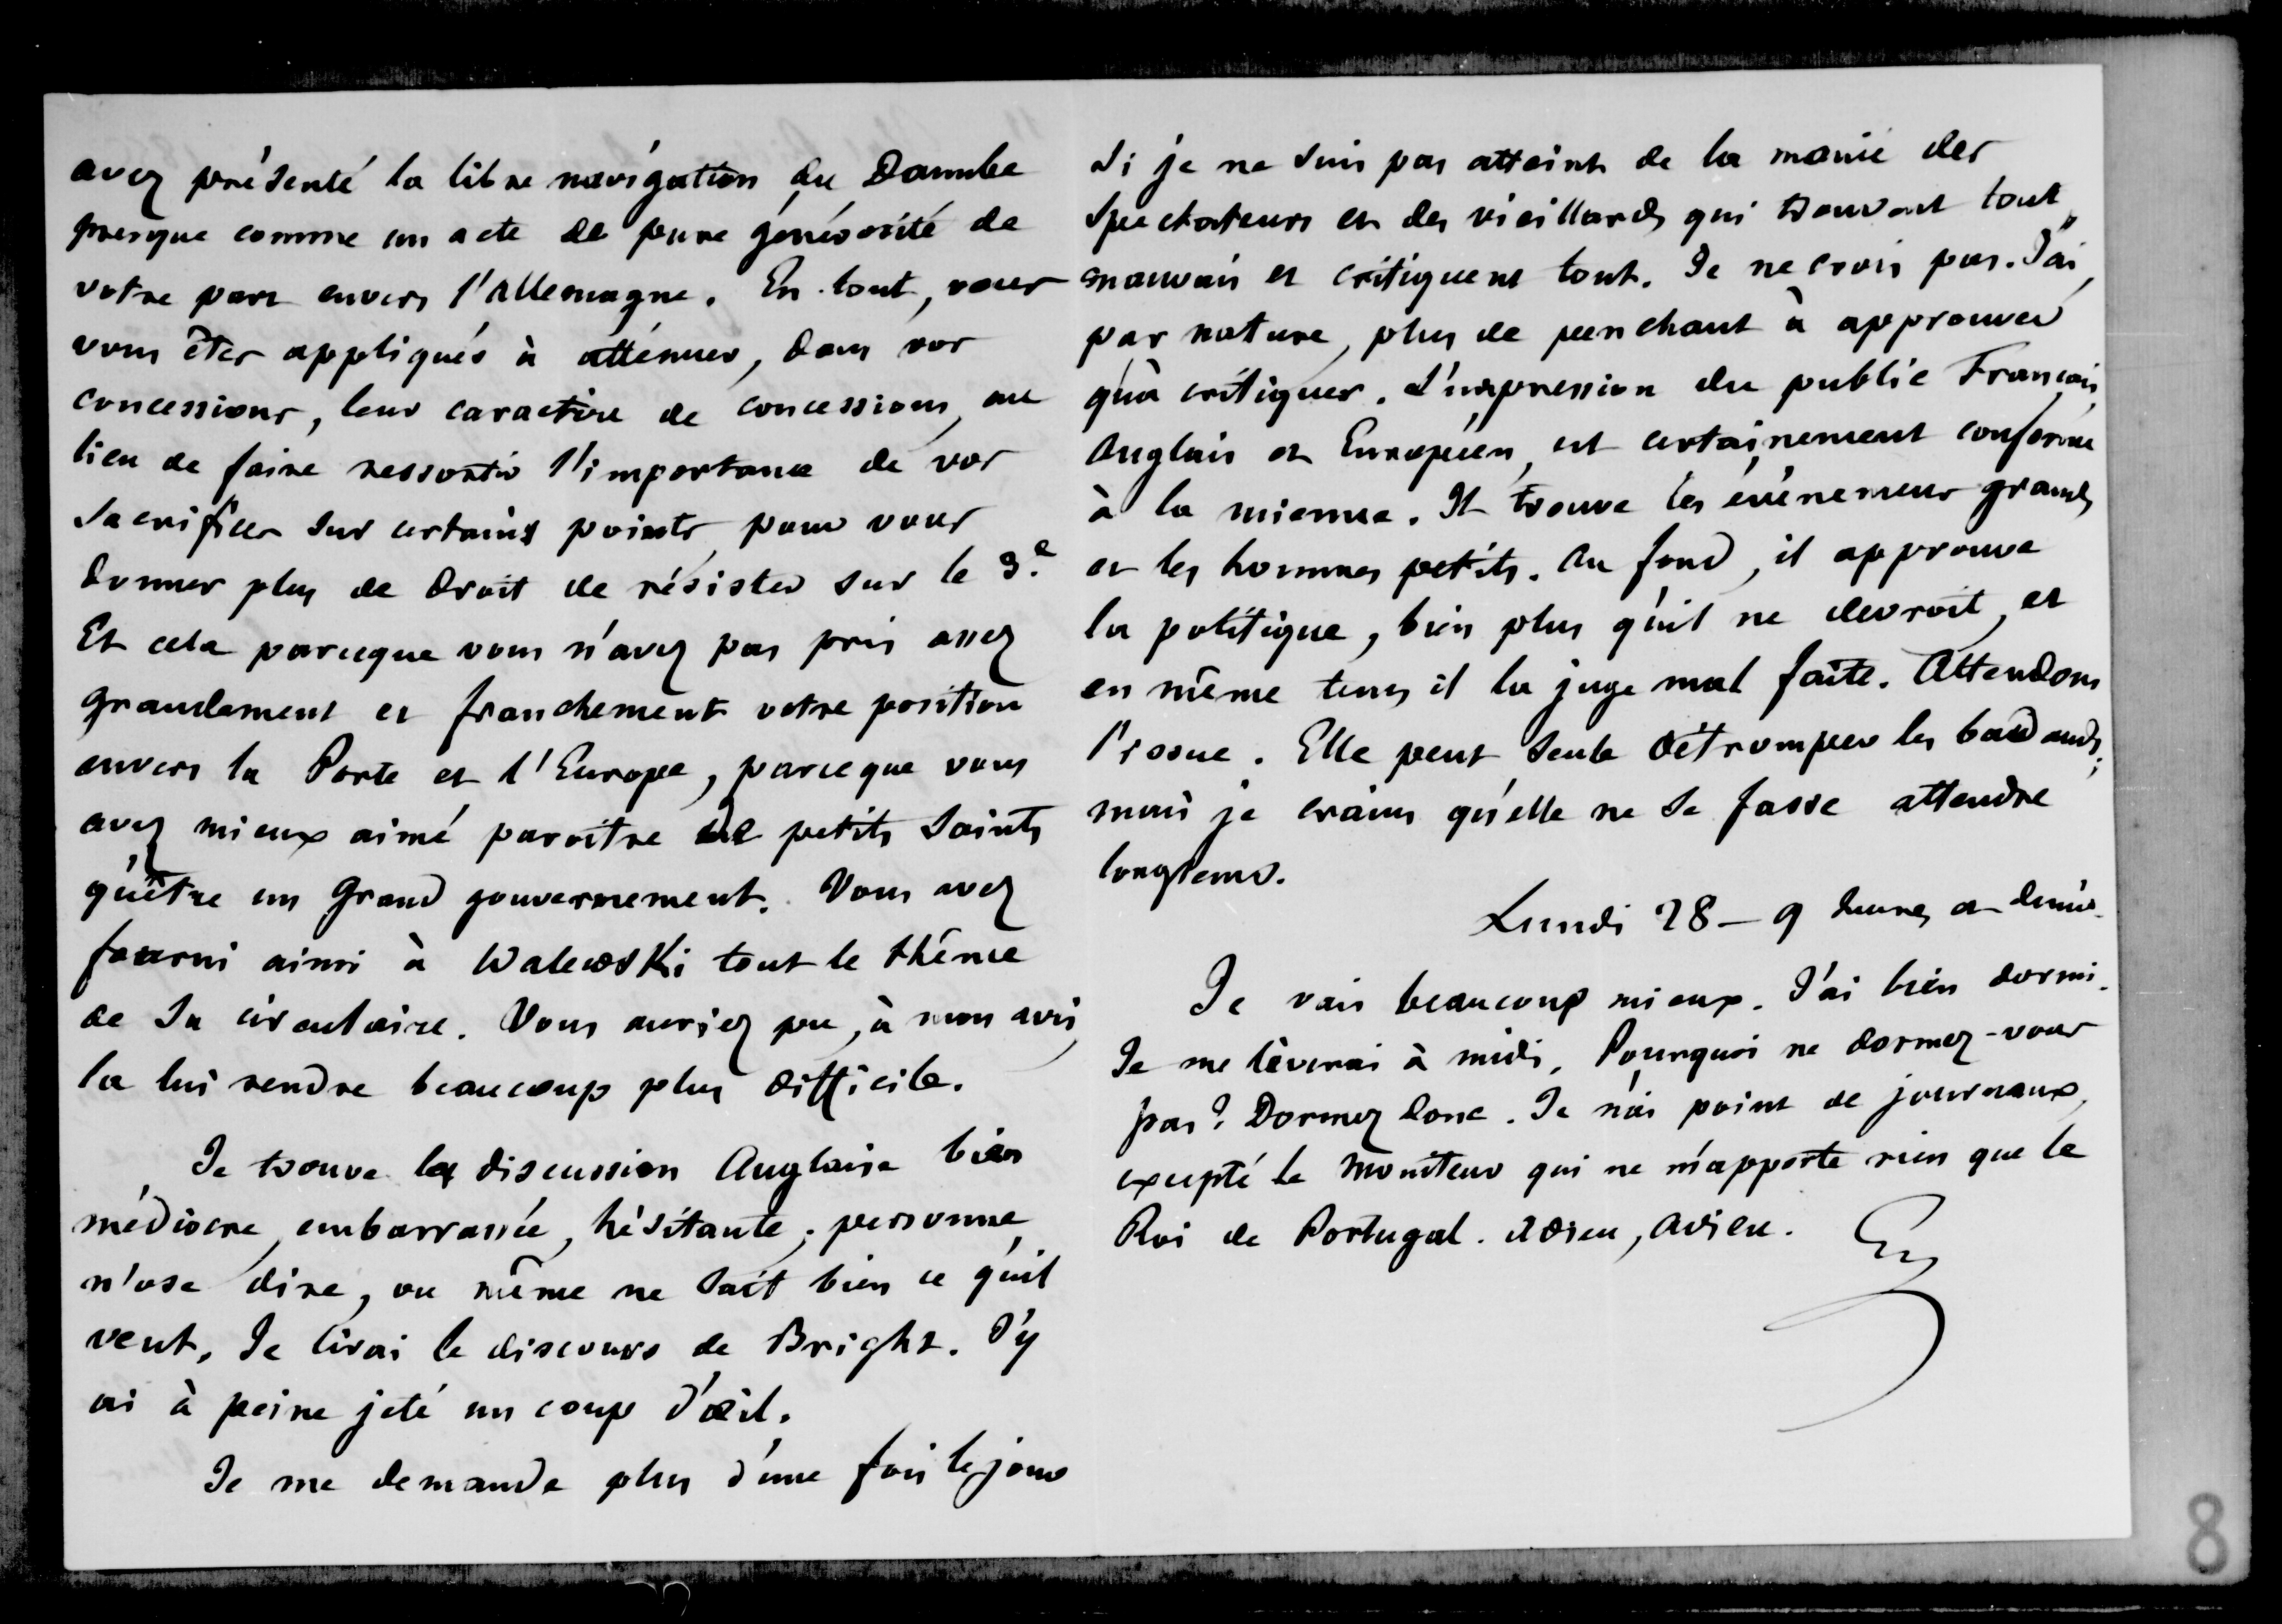 avez présenté la libre navigation du Danube
presque comme un acte de pure générosité de
votre part envers l'Allemagne. En tout, vous
vous êtes appliqués à atténuer, dans vos
concessions, leur caractère de concessions, au
lieu de faire ressortir l'importance de vos
sacrifices sur certains points pour vous
donner plus de droit de résister sur le 3e.
Et cela parceque vous n'avez pas pris assez
grandement et franchement votre position
envers la Porte et l'Europe, parceque vous
avez mieux aimé paroître de petits saints
qu'être un grand gouvernement. Vous avez
fourni ainsi à Walewski tout le thême
de sa circulaire. Vous auriez pu, à mon avis,
la lui rendre beaucoup plus difficile.
Je trouve la discussion Anglaise bien
médiocre, embarrassée, hésitante ; personne
n'ose dire, ou même ne sait bien ce qu'il
veut. Je lirai le discours de Bright. J'y
ai à peine jeté un coup d'œil.
Je me demande plus d'une fois le jour
si je ne suis pas atteint de la manie des
spectateurs et des vieillards qui trouvent tout
mauvais et critiquent tout. Je ne crois pas. J'ai,
par nature, plus de penchant à approuver
qu'à critiquer. L'impression du public Français,
Anglais et Européen, est certainement conforme
à la mienne. Il trouve les événemens grands
et les hommes petits. Au fond, il approuve
la politique, bien plus qu'il ne devroit, et
en même tems il la juge mal faite. Attendons
l'issue. Elle peut seule détromper les badauds ;
mais je crains qu'elle ne se fasse attendre
longtems.
Lundi 28 - 9 heures et demie.
Je vais beaucoup mieux. J'ai bien dormi.
Je me lèverai à midi. Pourquoi ne dormez-vous
pas ? Dormez donc. Je n'ai point de journaux,
excepté le Moniteur qui ne m'apporte rien que le
Roi de Portugal. Adieu, adieu.
8